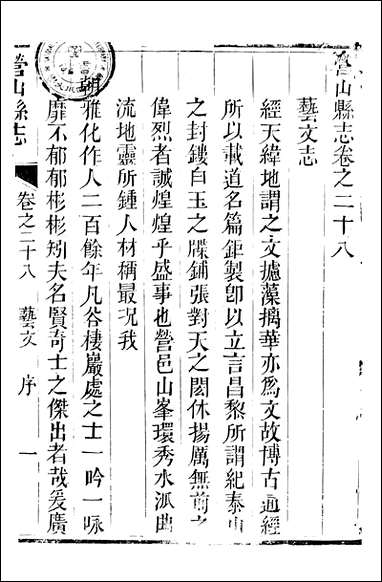 營山縣志卷之二十八
藝文志
經天緯地謂之文攄藻摛華亦為文故博古通經
所以載道名篇鉅製卽以立言昌黎所謂紀泰山
之封鏤白玉之牒鋪張對天之閎休揚厲無前之
偉烈者誠煌煌乎盛事也營邑山峯環秀水派曲
流地靈所鍾人材稱最况我
朝雅化作人二百餘年凡谷棲巖處之士一吟一咏
靡不郁郁彬彬矧夫名賢奇士之傑出者哉爰廣
營山縣志
卷之二十八
藝文
序
一